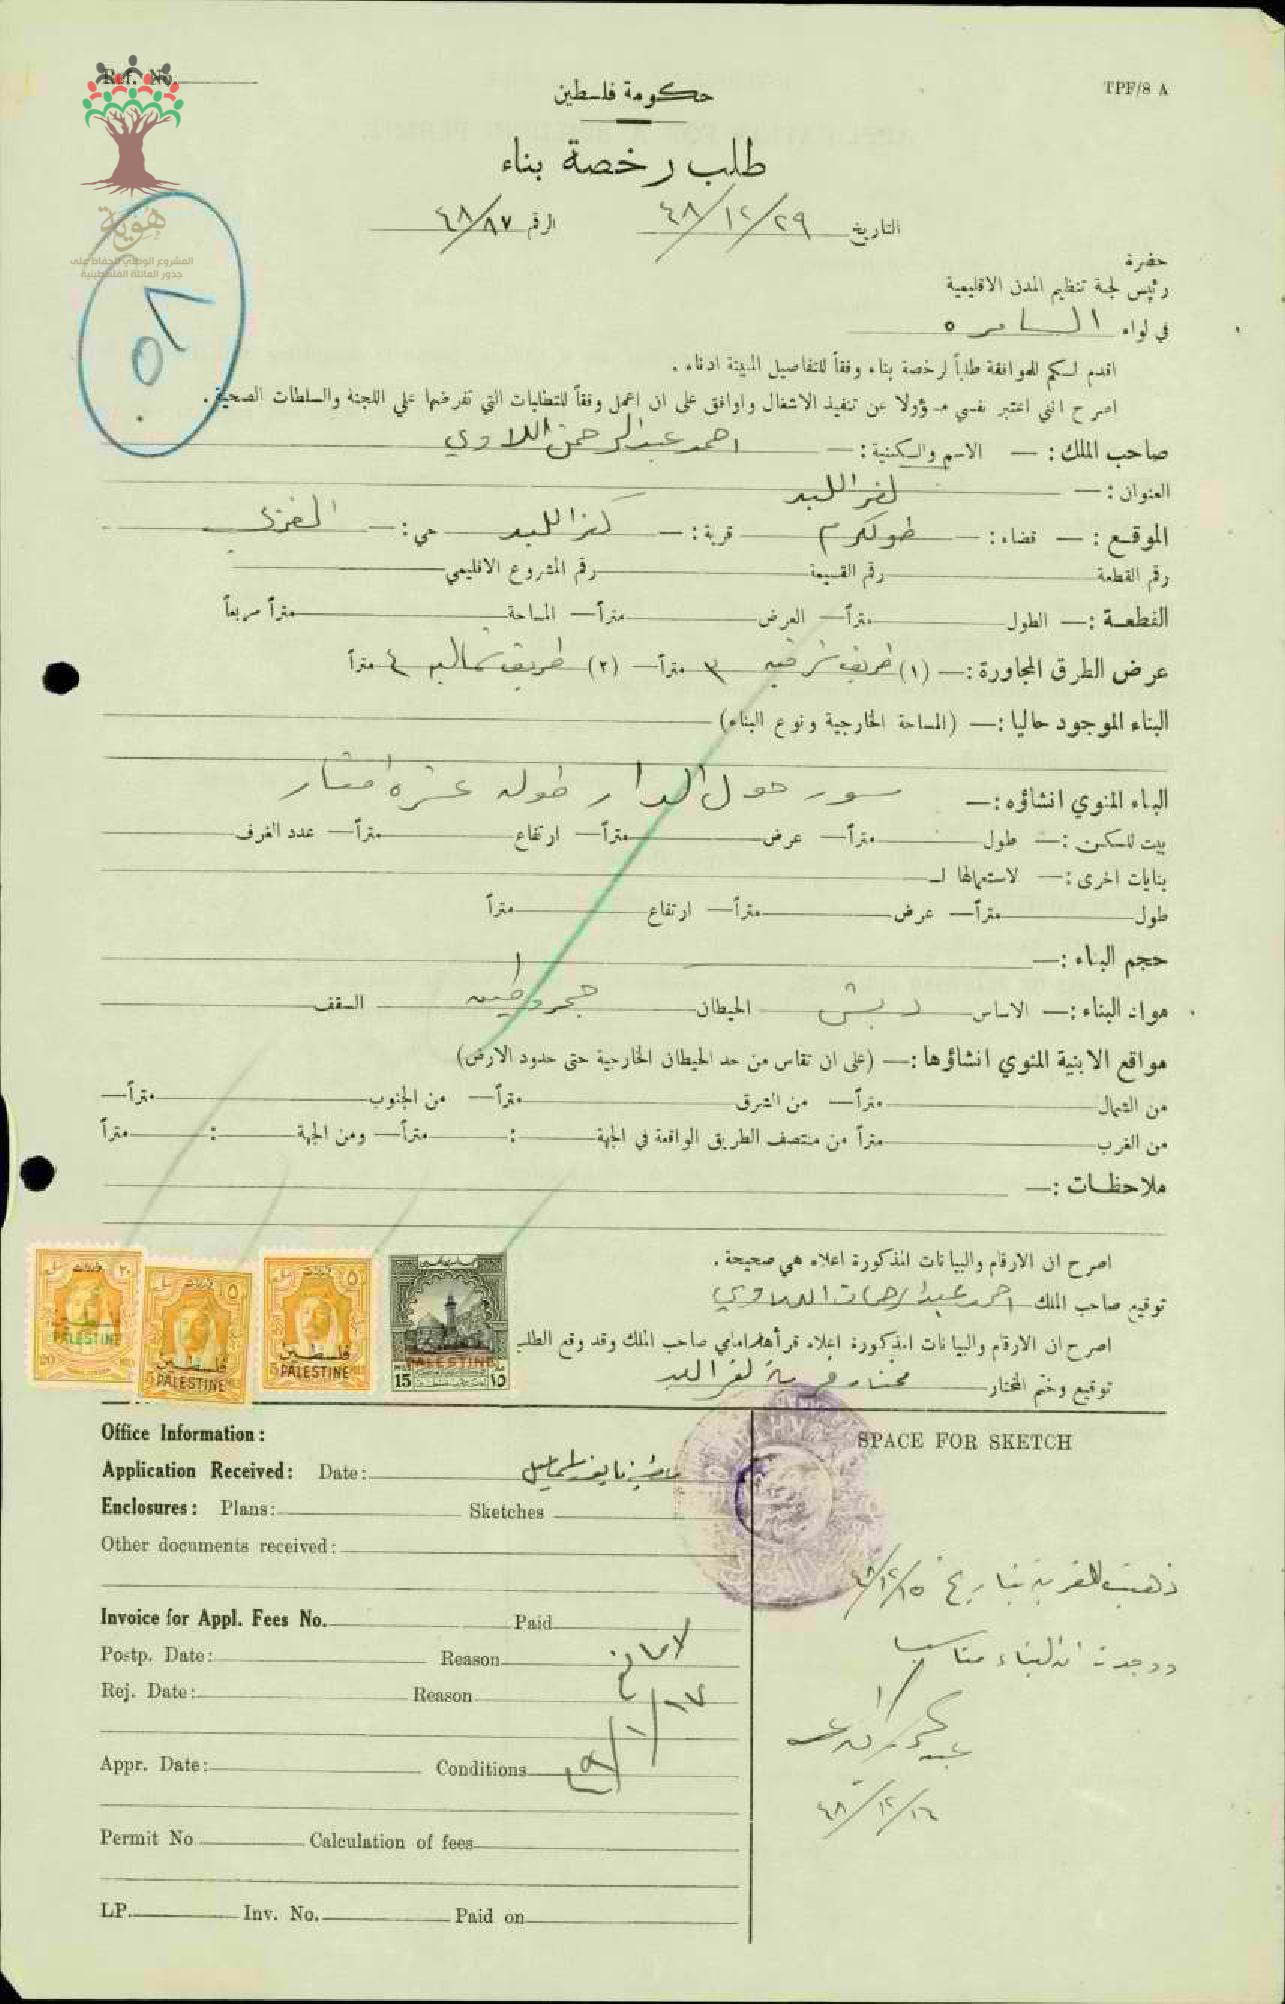 Ref. No.
TPF/8 A
هوية
المشروع الوطني للحفاظ على
جذور العائلة الفلسطينية
حكومة فلسطين
طلب رخصة بناء
التاريخ ٢٩/١٢/٤٨ الرقم ٤٨/٨٧
حضرة
رئيس لجنة تنظيم المدن الاقليمية
في لواء السامره
اقدم لكم للموافقة طلباً لرخصة بناء وفقاً للتفاصيل المبينة ادناه .
اصرح انني اعتبر نفسي مسؤولا عن تنفيذ الاشغال واوافق على ان اعمل وفقاً للمتطلبات التي تفرضها علي اللجنة والسلطات الصحية .
صاحب الملك : — الاسم والكنية : — احمد عبدالرحمن اللاوي
العنوان : — كفر اللبد
الموقع : — قضاء : — طولكرم قرية : — كفر اللبد حي : —
رقم القطعة رقم القسيمة رقم المشروع الاقليمي
القطعة : — الطول متراً — العرض متراً — المساحة متراً مربعاً
عرض الطرق المجاورة : — (١) طريق شرقيه ٣ متراً — (٢) طريق شماليه ٤ متراً
البناء الموجود حاليا : — (المساحة الخارجية ونوع البناء)
البناء المنوي انشاؤه : — سور حول الدار طوله عشرة امتار
بيت للسكن : — طول متراً — عرض متراً — ارتفاع متراً — عدد الغرف
بنايات اخرى : — لاستعمالها لـ
طول متراً — عرض متراً — ارتفاع متراً
حجم البناء : —
مواد البناء : — الاساس دبش الحيطان حجر وطين السقف
مواقع الابنية المنوي انشاؤها : — (على ان تقاس من حد الحيطان الخارجية حتى حدود الارض)
من الشمال متراً — من الشرق متراً — من الجنوب متراً —
من الغرب متراً من منتصف الطريق الواقعة في الجهة : متراً — ومن الجهة : متراً
ملاحظات : —
اصرح ان الارقام والبيانات المذكورة اعلاه هي صحيحة .
توقيع صاحب الملك احمد عبدالرحمن اللاوي
اصرح ان الارقام والبيانات المذكورة اعلاه قرأها امامي صاحب الملك وقد وقع الطلب
توقيع وختم المختار مختار قرية كفر اللبد
فلسطين
PALESTINE
PALESTINE
PALESTINE
PALESTINE
15 ١٥
Office Information :
Application Received : Date :
Enclosures : Plans : Sketches
Other documents received :
Invoice for Appl. Fees No. Paid
Postp. Date : Reason لا مانع
Rej. Date : Reason
١٧/١/٤٩
Appr. Date : Conditions
Permit No Calculation of fees
LP. Inv. No. Paid on
SPACE FOR SKETCH
ذهبت للقرية بتاريخ ١٥/١٢/٤٨
ووجدت ان البناء مناسب
١٦/١٢/٤٨